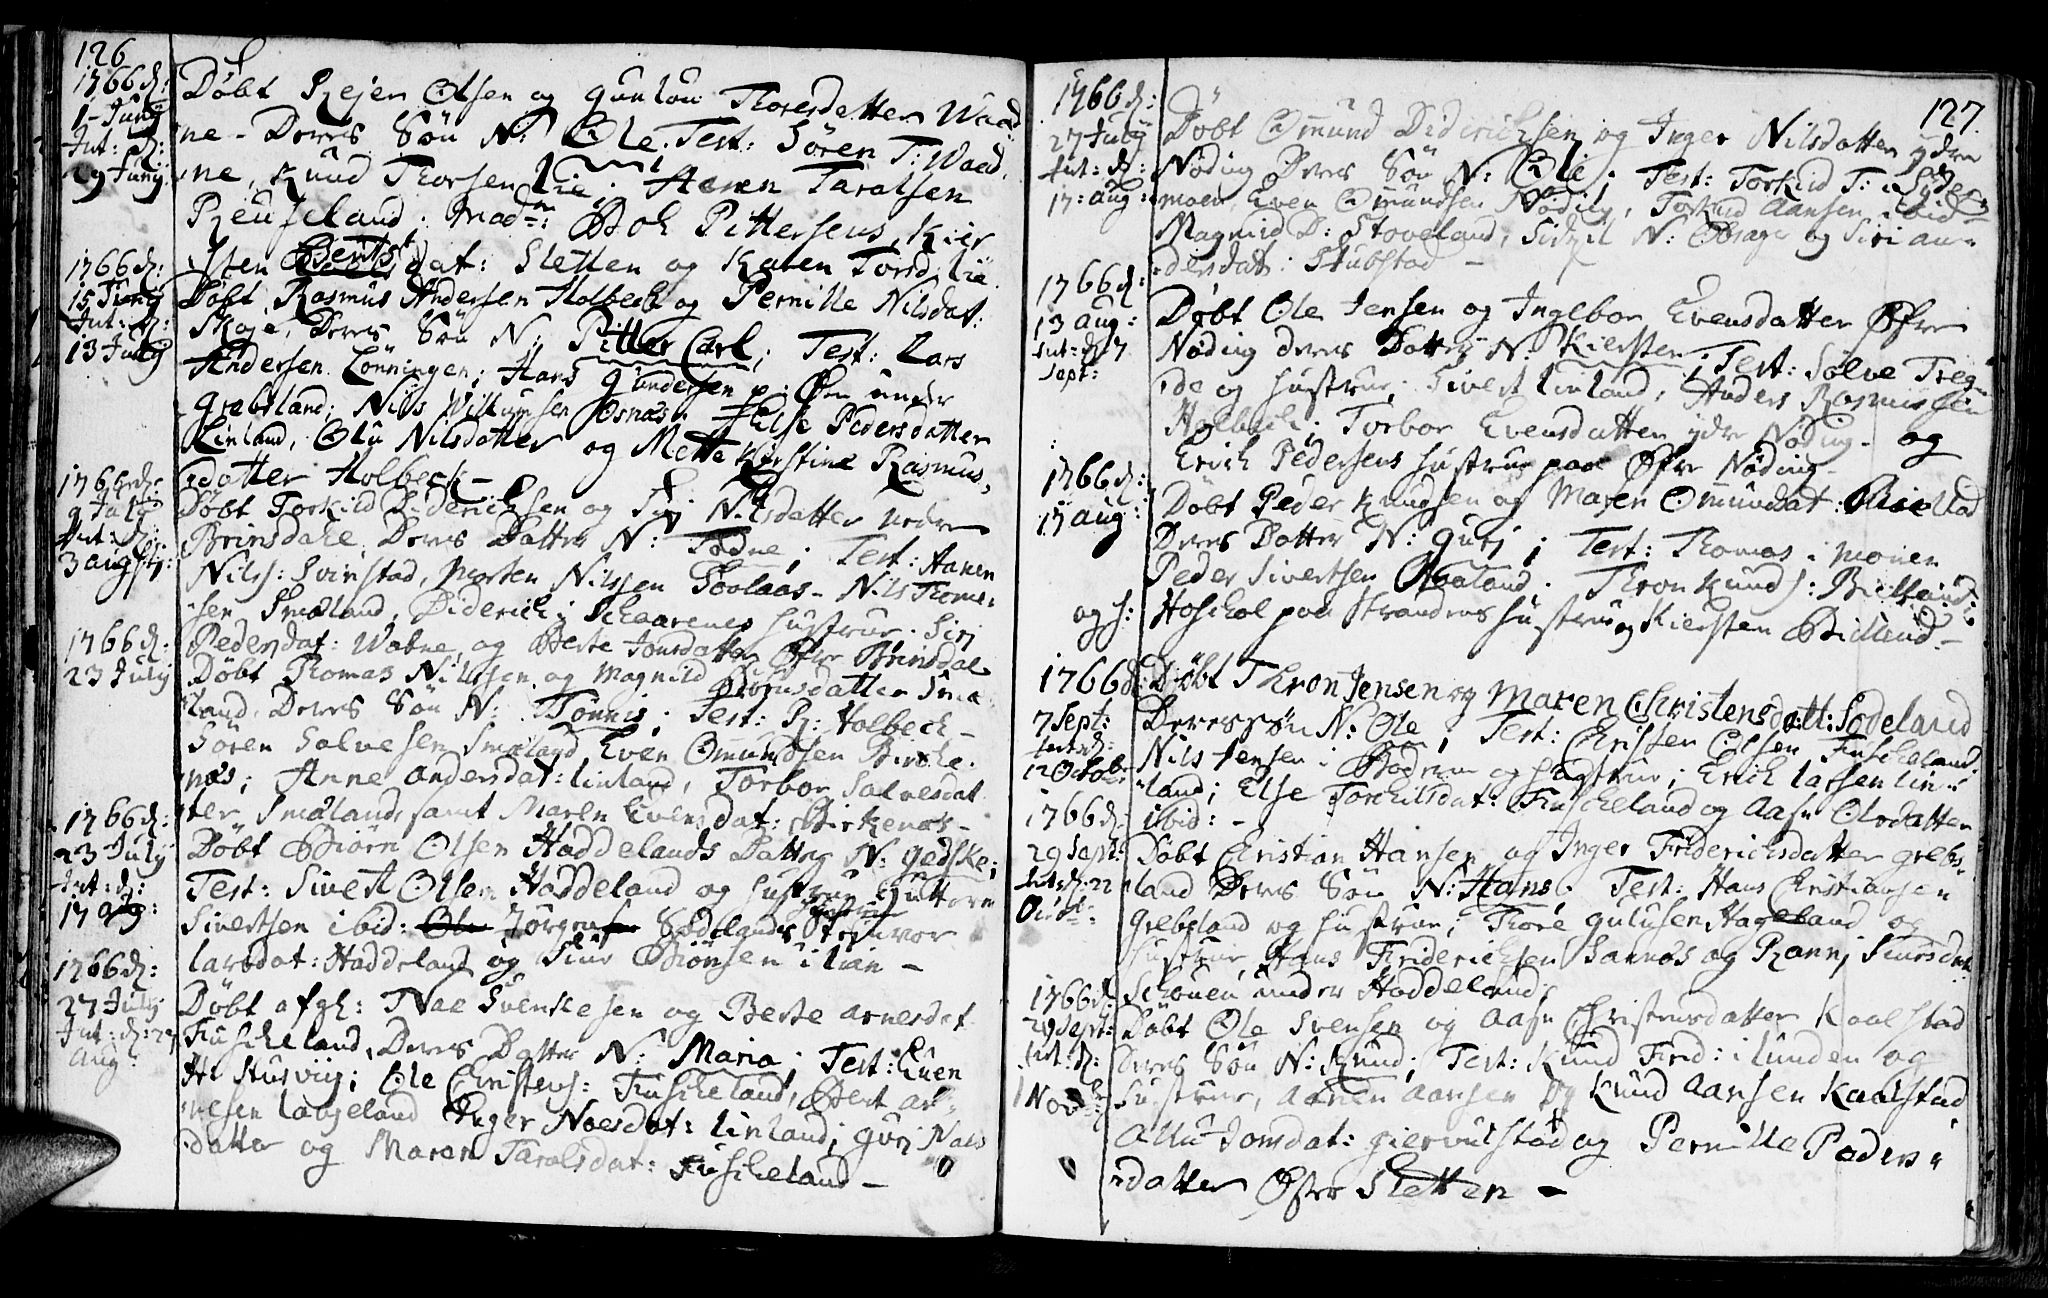 126
1766 d:
1-Junij
Int: d:
29 Junij
Døbt Rejer Olsen og Gunlou Thoresdatter Waad
ne - Deres Søn N: Ole. Test: Sören T: Waad
ne, Knud Thorsen Lie; Aanen Taralsen
; Mad: Boh Pittersens, Kier
sten Bents dat: Sletten og Karen Torsd: Lie
1766 d:
15 Junij
Int: d:
13 Julij
Døbt Rasmus Andersen Holbech og Pernille Nilsdat:
Skaje, Deres Søn N: Pitter Carl; Test: Lars
Andersen Lönningen; Hans Gundersen p: Øen under
Grebsland; Nils Willumsen Osnæs; Else Pedersdatter
Linland, Olu Nilsdatter og Mette Kirstine Rasmus,
datter Holbeck -
1766 d:
9 Julij
Int: d:
3 augstj:
Døbt Torkild Diderichsen og Siri Nilsdatter nedre
Brinsdahl Deres Datter N: Todne; Test: Aanen
Nilss: Svinstad, Morten Nilssen - Nils Thoms:
sen Smaland, Diderich i Schaarenes Hustrue. Siri
Pedersdat: Watne og Berte Jonsdatter Øfre Brinsdal
1766 d:
23 Julij
Døbt Thomas Nilssen og Magnild Biörnsdatter Sma
land, Deres Søn N: Tönnis; Test: R: Holbech -
Sören Salvesen Smaland Even Omundsen Birke
næs; Anne Andersdat: Linland, Torbor Salvesdat
ter Smaland, samt Maren Evensdat: Birkenæs -
1766 d:
23 Julij
Int: d:
17 aug:
Døbt Biörn Olsen Haddelands Datter N: Gedske;
Test: Sivert Olsen Haddeland og Hustrue Guttorm
Sivertsen ibid: Jörgen Södelands
Larsdat: Haddeland og Siur Biönsen i Lian -
1766 d:
27 Julij
Int: d: 27
Aug:
Døbt afgl: Nae Svenkesen og Berte Arnesdat
Fuscheland, Deres Datter N: Maria; Test: Even
At Husvig; Ole Christens: Fuscheland, Bert Ar
nesen Laugeland Inger Naesdat: Linland; Guri Naes
datter og Maren Taralsdat: Fuscheland -
127.
1766 d:
27 Julij
Int: d:
17: aug:
Døbt Omund Diderichsen og Inger Nilsdatter ydre
Nöding Deres Søn N: Ole; Test: Torkild T: i Syder
moen, Even Omundsen Nöding, Torkild Aansen ibid
Magnild D: Stoveland, Sidzil N: Brager og Siri An-
dersdat: Stubstad -
1766 d:
13 aug:
Int: d: 7
Sept:
Døbt Ole Jensen og Ingebor Evensdatter Øfre
Nöding deres Datter N: Kiersten; Test: Sölve Treg
de og Hustrue; Sivert Linland, Anders Rasmussen
Holbech; Torbor Evensdatter ydre Nöding - og
Erich Pedersens Hustrue paa Øfre Nöding
1766 d:
17 aug:
Døbt Peder Knudsen og Maren Omundsdat:
Deres Datter N: Gurj; Test: Thomas i Monen
Peder Sivertsen; Thron Knuds:
og H: Hoschol paa Strandens Hustrue og Kiersten Bielland -
1766 d:
7 Sept:
Int: d:
12 Octob:
Døbt Thron Jensen og Maren Christensdatt: Södeland
Deres søn N: Ole; Test: Christen Olsen Fuscheland
Nils Jensen i Bodrum og Hustrue; Erich Larsen Lin-
land; Else Torchilsdat: Fuscheland og Aase Olsdatter
ibid: -
1766 d:
29 Sept:
Int: d: 22
Octob:
Døbt Christian Hansen og Inger Friderichsdatter Grebs
land Deres Søn N: Hans; Test: Hans Christiansen
Grebsland og Hustrue; Thore Gulusen Hageland og
Hustrue, Hans Friderichsen Sannæs og Ranni Siursdat
Schouen under Haddeland;
1766 d:
29 Sept:
Int: d:
1 Nov:
Døbt Ole Svensen og Aase Christensdatter Kaalstad
Deres Søn N: Knud; Test: Knud Frid: i Lunden og
Hustrue, Aanen Aansen og Knud Aansen Kaalstad
Allu Jonsdat: Giervulstad og Pernille Peders
datter Øfre Sletten -